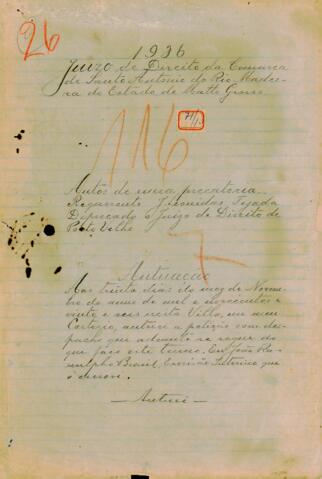 26
1926
Juizo de Direito da Comarca
de Santo Antonio do Rio Madei-
ra do Estado de Matto Grosso
116
Autos de uma precatoria
Requerente, Tejada
Deprecado o Juizo de Direito de
Porto Velho
7
Autuação
Aos trinta dias do mez de Novem-
bro do anno de mil e novecentos e
vinte e seis nesta Villa, em meu
Cartorio, autuei a petição com des-
pacho que adiante se segue do
que faço este termo. Eu, João
Brasil, Escrivão Interino que
o escrevi.
— Autuei —